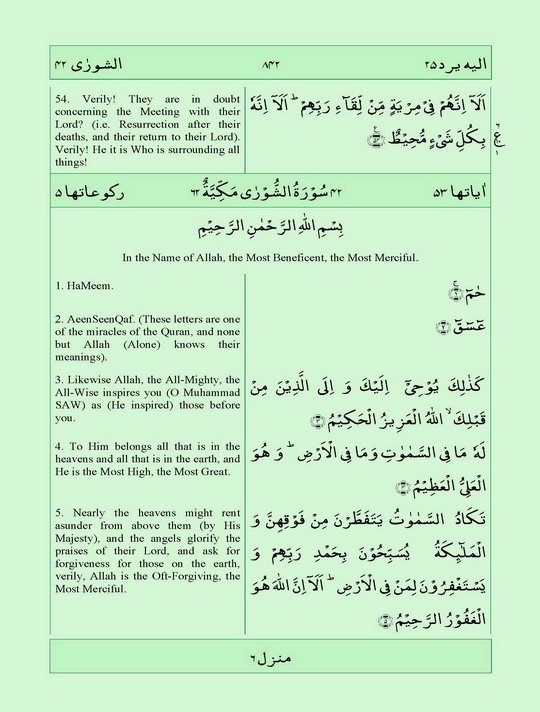 الشورٰى ۴۲ ۸۴۲ اليه يرد ۲۵
54. Verily! They are in doubt
concerning the Meeting with their
Lord? (i.e. Resurrection after their
deaths, and their return to their Lord).
Verily! He it is Who is surrounding all
things!
اَلَاۤ اِنَّهُمْ فِىْ مِرْيَةٍ مِّنْ لِّقَآءِ رَبِّهِمْ ؕ اَلَاۤ اِنَّهٗ
بِكُلِّ شَىْءٍ مُّحِيْطٌ
اٰياتها ۵۳ ۴۲ سُوْرَةُ الشُّوْرٰى مَكِّيَّةٌ ۶۲ ركوعاتها ۵
بِسْمِ اللهِ الرَّحْمٰنِ الرَّحِيْمِ
In the Name of Allah, the Most Beneficent, the Most Merciful.
1. HaMeem.
حٰمٓ ۚ ﴿۱﴾
2. AeenSeenQaf. (These letters are one
of the miracles of the Quran, and none
but Allah (Alone) knows their
meanings).
عٓسٓقٓ ﴿۲﴾
3. Likewise Allah, the All-Mighty, the
All-Wise inspires you (O Muhammad
SAW) as (He inspired) those before
you.
كَذٰلِكَ يُوْحِىْۤ اِلَيْكَ وَ اِلَى الَّذِيْنَ مِنْ
قَبْلِكَ ۙ اللهُ الْعَزِيْزُ الْحَكِيْمُ ﴿۳﴾
4. To Him belongs all that is in the
heavens and all that is in the earth, and
He is the Most High, the Most Great.
لَهٗ مَا فِى السَّمٰوٰتِ وَمَا فِى الْاَرْضِ ؕ وَ هُوَ
الْعَلِىُّ الْعَظِيْمُ ﴿۴﴾
5. Nearly the heavens might rent
asunder from above them (by His
Majesty), and the angels glorify the
praises of their Lord, and ask for
forgiveness for those on the earth,
verily, Allah is the Oft-Forgiving, the
Most Merciful.
تَكَادُ السَّمٰوٰتُ يَتَفَطَّرْنَ مِنْ فَوْقِهِنَّ وَ
الْمَلٰٓئِكَةُ يُسَبِّحُوْنَ بِحَمْدِ رَبِّهِمْ وَ
يَسْتَغْفِرُوْنَ لِمَنْ فِى الْاَرْضِ ؕ اَلَاۤ اِنَّ اللهَ هُوَ
الْغَفُوْرُ الرَّحِيْمُ ﴿۵﴾
منزل ۶